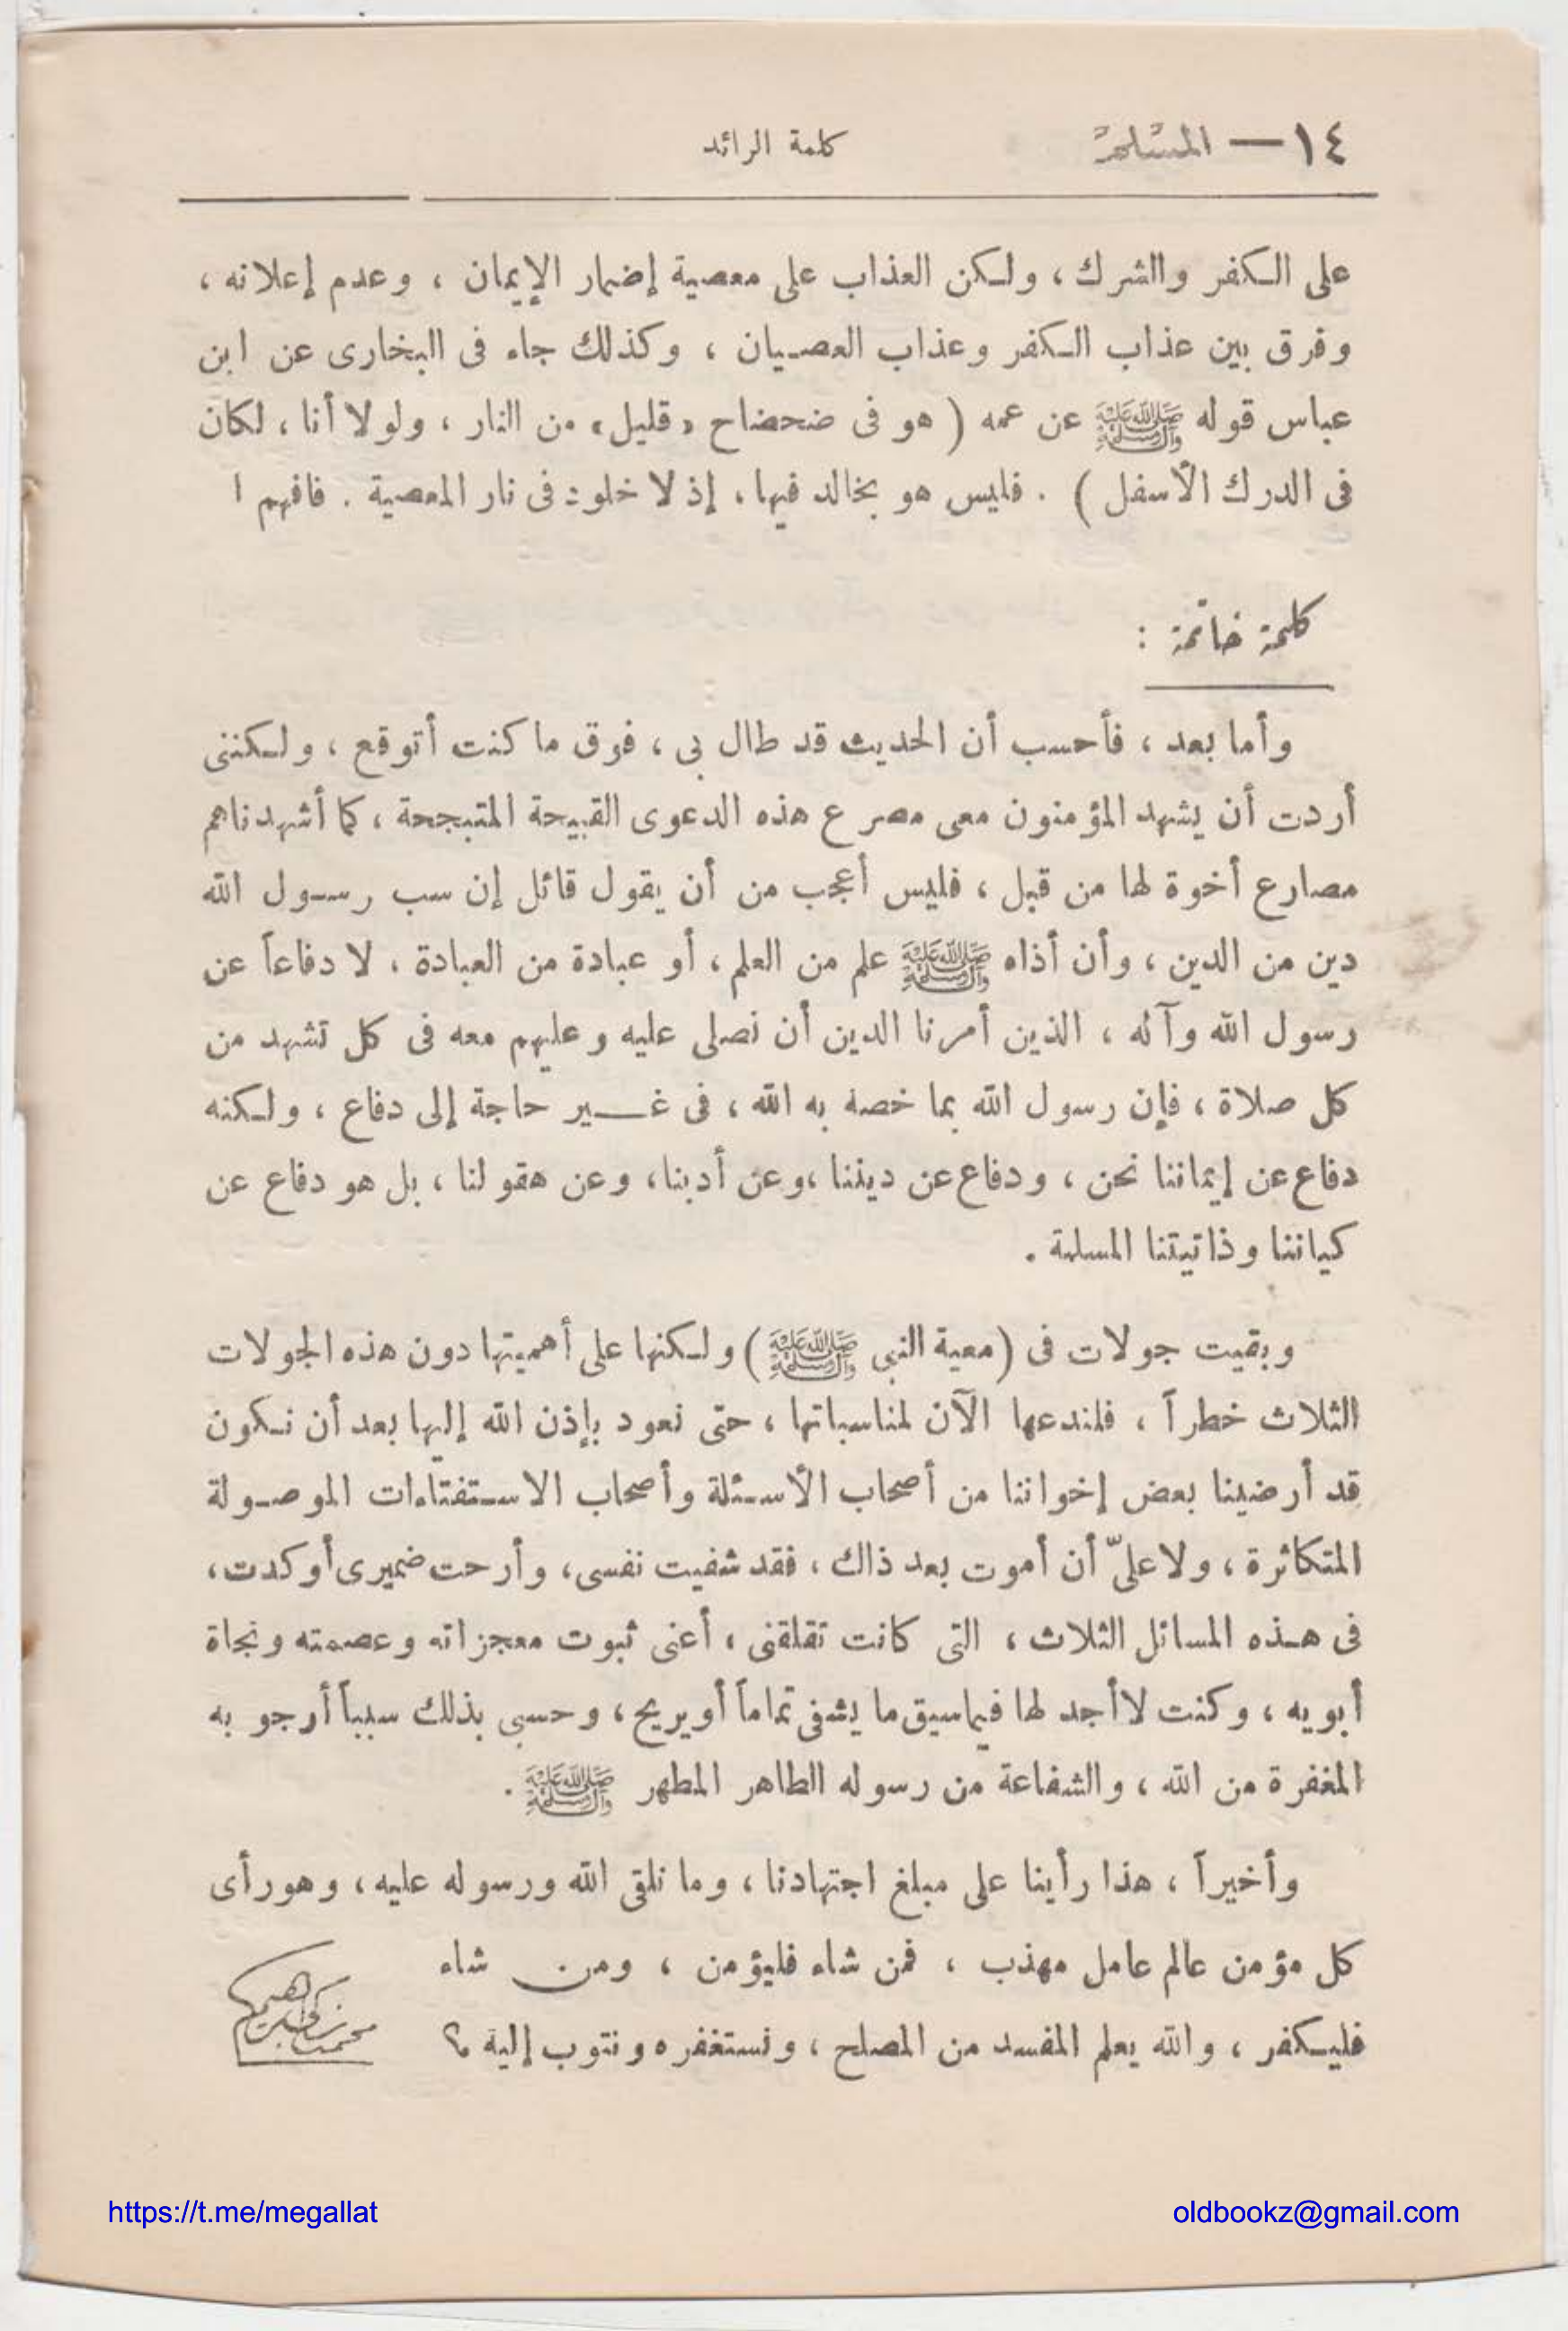 ١٤ — المسلم
كلمة الرائد
على الكفر والشرك ، ولكن العذاب على معصية إضمار الإيمان ، وعدم إعلانه ،
وفرق بين عذاب الكفر وعذاب العصيان ، وكذلك جاء فى البخارى عن ابن
عباس قوله ﷺ عن عمه ( هو فى ضحضاح « قليل » من النار ، ولولا أنا ، لكان
فى الدرك الأسفل ) . فليس هو بخالد فيها ، إذ لا خلود فى نار المعصية . فافهم !
كلمة خاتمة :
وأما بعد ، فأحسب أن الحديث قد طال بى ، فوق ما كنت أتوقع ، ولكننى
أردت أن يشهد المؤمنون معى مصرع هذه الدعوى القبيحة المتبجحة ، كما أشهدناهم
مصارع أخوة لها من قبل ، فليس أعجب من أن يقول قائل إن سب رسول الله
دين من الدين ، وأن أذاه ﷺ علم من العلم ، أو عبادة من العبادة ، لا دفاعاً عن
رسول الله وآله ، الذين أمرنا الدين أن نصلى عليه وعليهم معه فى كل تشهد من
كل صلاة ، فإن رسول الله بما خصه به الله ، فى غير حاجة إلى دفاع ، ولكنه
دفاع عن إيماننا نحن ، ودفاع عن ديننا ، وعن أدبنا ، وعن هقولنا ، بل هو دفاع عن
كياننا وذاتيتنا المسلمة .
وبقيت جولات فى (معية النبى ﷺ) ولكنها على أهميتها دون هذه الجولات
الثلاث خطراً ، فلندعها الآن لمناسباتها ، حتى نعود بإذن الله إليها بعد أن نكون
قد أرضينا بعض إخواننا من أصحاب الأسئلة وأصحاب الاستفتاءات الموصولة
المتكاثرة ، ولا علىّ أن أموت بعد ذاك ، فقد شفيت نفسى ، وأرحت ضميرى أو كدت ،
فى هذه المسائل الثلاث ، التى كانت تقلقنى ، أعنى ثبوت معجزاته وعصمته ونجاة
أبويه ، وكنت لا أجد لها فيما سبق ما يشفى تماماً أو يريح ، وحسبى بذلك سبباً أرجو به
المغفرة من الله ، والشفاعة من رسوله الطاهر المطهر ﷺ .
وأخيراً ، هذا رأينا على مبلغ اجتهادنا ، وما نلقى الله ورسوله عليه ، وهو رأى
كل مؤمن عالم عامل مهذب ، فمن شاء فليؤمن ، ومن شاء
فليكفر ، والله يعلم المفسد من المصلح ، ونستغفره ونتوب إليه ؟
محمد زكى إبراهيم
https://t.me/megallat
oldbookz@gmail.com